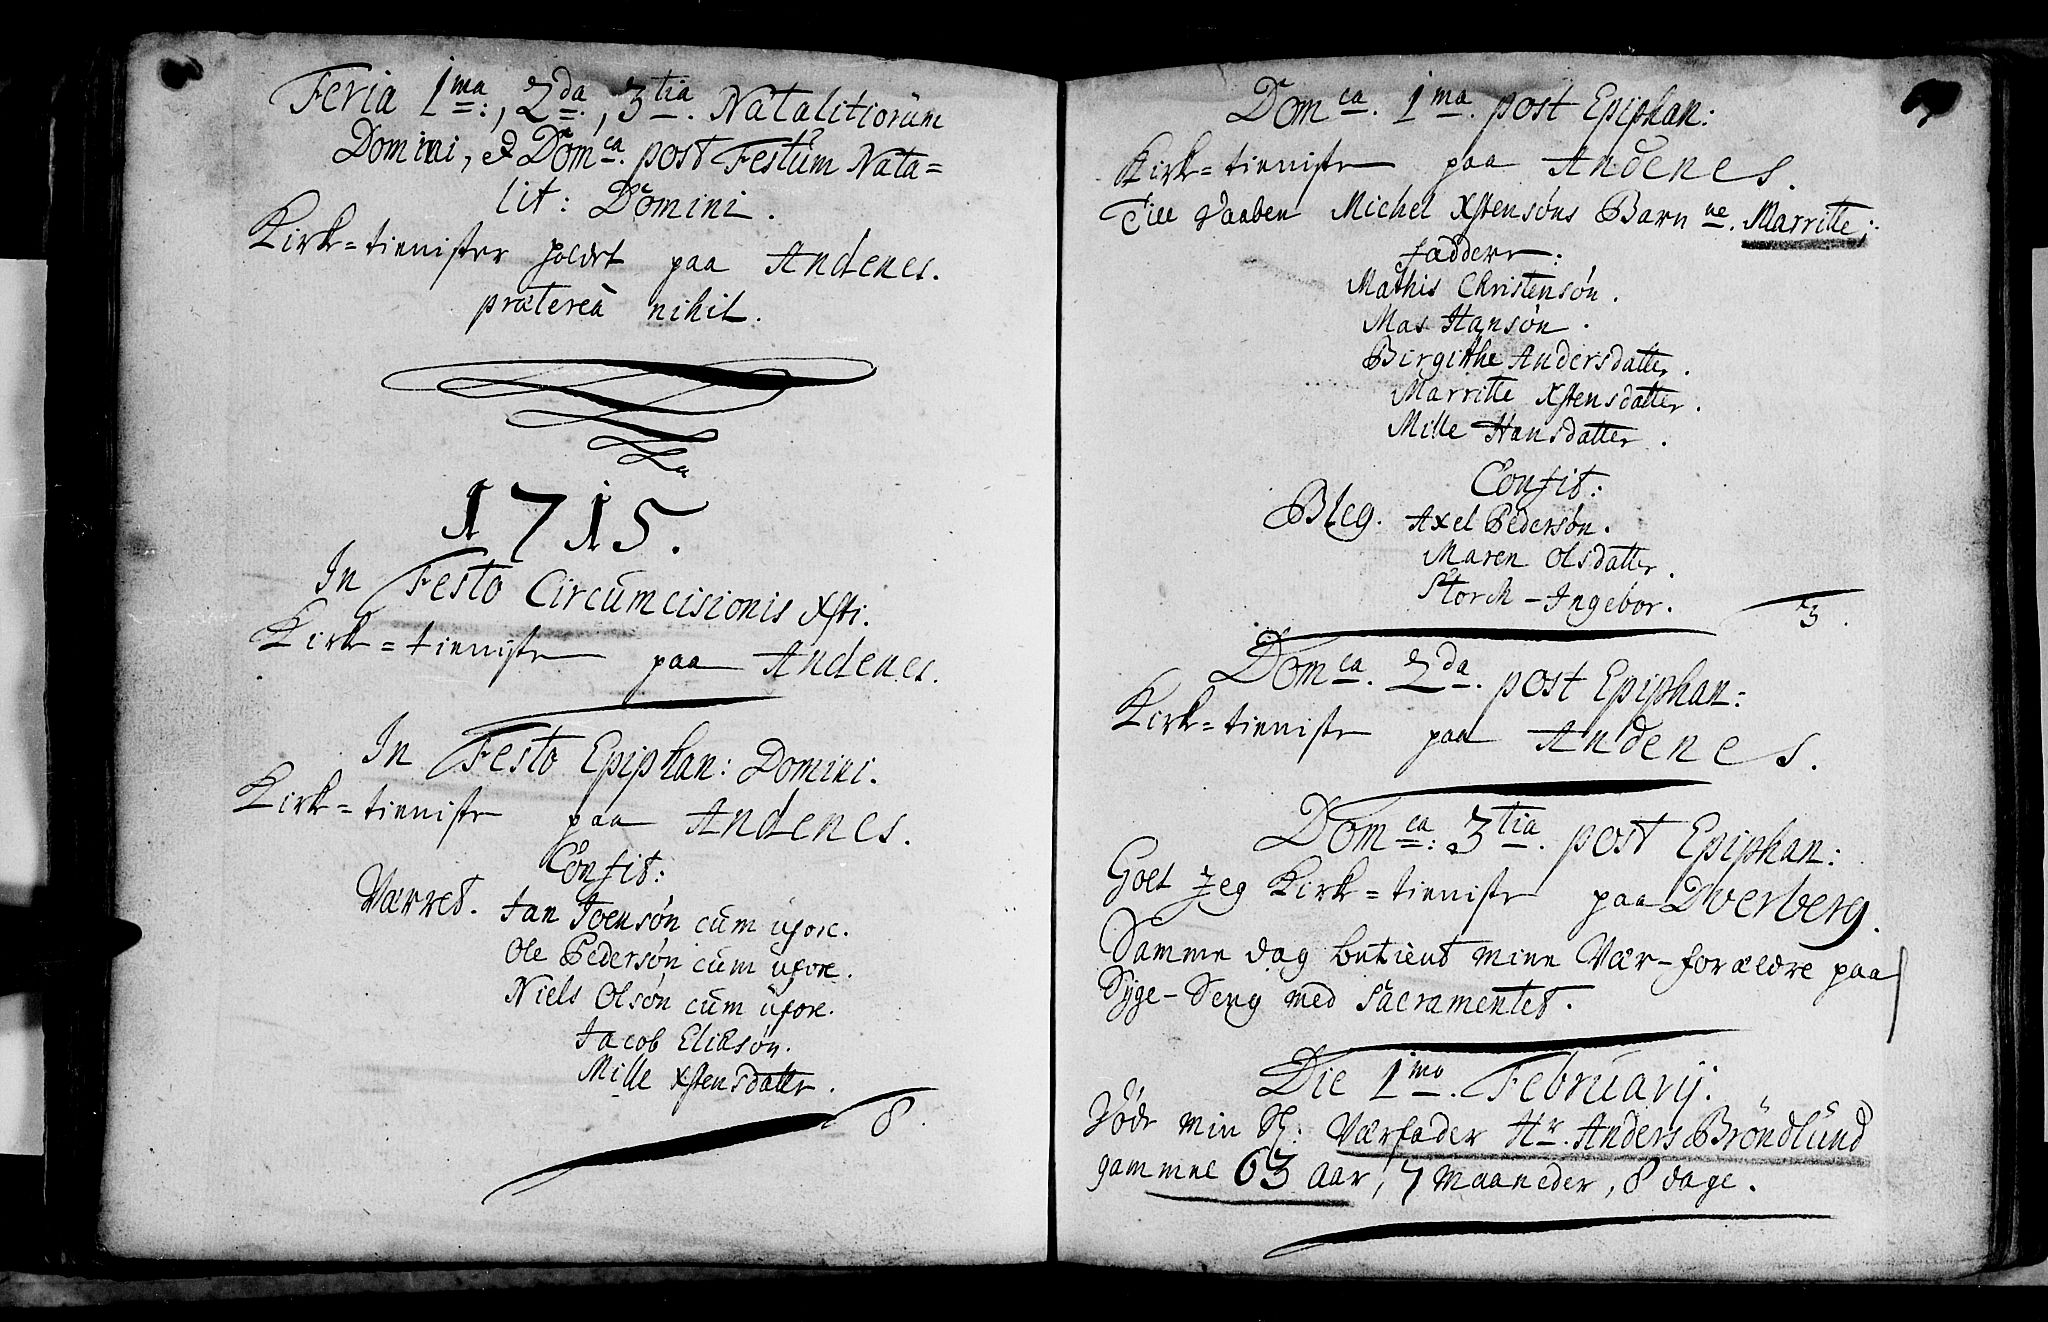 Feria 1ma:, 2da., 3tia. Natalitiorum
Domini, et Domca. post Festum Nata=
lit: Domini.
Kirk=tienister holdet paa Andenes.
prætereà nihil.
1715.
In Festo Circumcisionis Xsti.
Kirk=tieniste paa Andenes.
In Festo Epiphan: Domini.
Kirk=tieniste paa Andenes.
Confit:
Værret. Jan Joensøn cum uxore.
Ole Pedersøn cum uxore.
Niels Olsøn cum uxore.
Jacob Eliesøn.
Mille Xstensdatter.
8.
Domca. 1ma. post Epiphan:
Kirk=tieniste paa Andenes.
Till Daaben Michel Xstensøns Barn ne. Marritte;
faddere:
Mathis Christensøn.
Mas Hansøn.
Birgitthe Andersdatter.
Marritte Xstensdatter.
Mille Hansdatter.
Confit:
Bleg. Axel Pedersøn.
Maren Olsdatter.
Storch-Ingebor.
3.
Domca. 2da. post Epiphan:
Kirk=tieniste paa Andenes.
Domca: 3tia. post Epiphan:
Holt Jeg Kirk=tieniste paa Dverberg.
Samme dag betient mine Vær-forældre paa
Syge-Seng med Sacramentet.
Die 1mo. February:
Døde min Sl: Værfader Hr. Anders Bröndlund
gammel 63 aar, 7 maaneder, 8 dage.